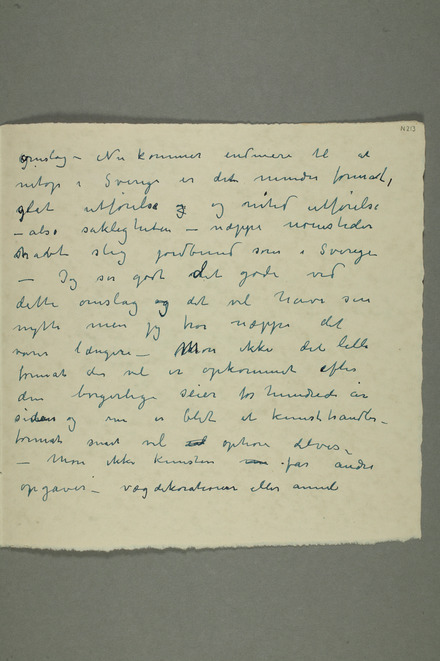 N 213
omslag – Nu kommer endmere til at
netop i Sverige er det mindre format,
glat utførelse og nitid utførelse
– altså sakligheten – næppe noensteder
skabt slig jordbund som i Sverige
– Jeg ser godt det gode ved
dette omslag og det vil have sin
nytte men jeg tror næppe det
varer længere – Mon ikke det lille
format der vel er opkommet efter
den borgerlige seier for hundrede år
siden og nu er blet et kunsthandler-
format snart vil ophøre
– Mon ikke kunsten får andre
opgaver – vægdekorationer eller annet